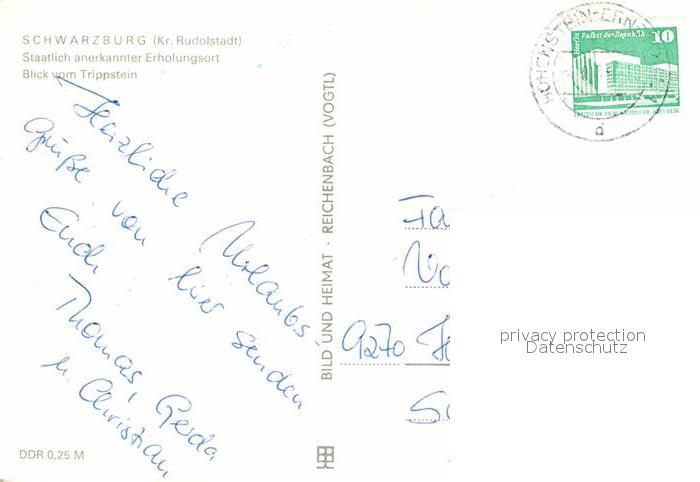 SCHWARZBURG (Kr. Rudolstadt)
Staatlich anerkannter Erholungsort
Blick vom Trippstein
Herzliche Urlaubs-
grüße von hier senden
Euch
Thomas, Gerda
u. Christian
DDR 0,25 M
BILD UND HEIMAT · REICHENBACH (VOGTL)
HOHENSTEIN-ERNST
a
Berlin Palast der Republik 10
DEUTSCHE DEMOKRATISCHE REPUBLIK
Fa
9270
privacy protection
Datenschutz